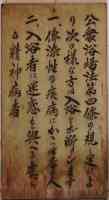 公衆浴場法第四條の規定よ
り次の様な方は入浴お断りします
一、傳染性の疾病にかつて居る者
二、入浴者に迷惑を與へる者
る精神病者